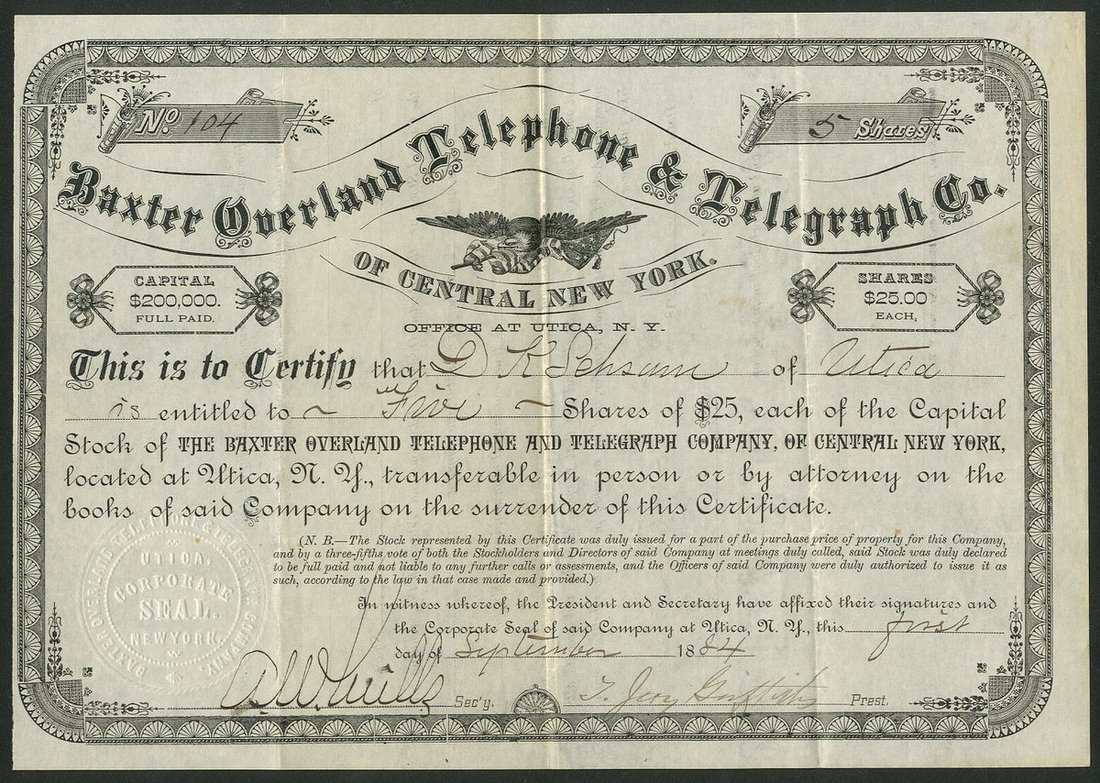 No. 104
5 Shares
Baxter Overland Telephone & Telegraph Co.
OF CENTRAL NEW YORK.
CAPITAL
$200,000.
FULL PAID.
SHARES
$25.00
EACH,
OFFICE AT UTICA, N. Y.
This is to Certify that D K Schsum of Utica
is entitled to ~ Five ~ Shares of $25, each of the Capital
Stock of THE BAXTER OVERLAND TELEPHONE AND TELEGRAPH COMPANY, OF CENTRAL NEW YORK,
located at Utica, N. Y., transferable in person or by attorney on the
books of said Company on the surrender of this Certificate.
(N. B.—The Stock represented by this Certificate was duly issued for a part of the purchase price of property for this Company,
and by a three-fifths vote of both the Stockholders and Directors of said Company at meetings duly called, said Stock was duly declared
to be full paid and not liable to any further calls or assessments, and the Officers of said Company were duly authorized to issue it as
such, according to the law in that case made and provided.)
In witness whereof, the President and Secretary have affixed their signatures and
the Corporate Seal of said Company at Utica, N. Y., this first
day of September 1884
BAXTER OVERLAND TELEPHONE & TELEGRAPH COMPANY
UTICA,
CORPORATE
SEAL.
NEW YORK.
A W Mills Sec'y.
T. Griffiths Prest.